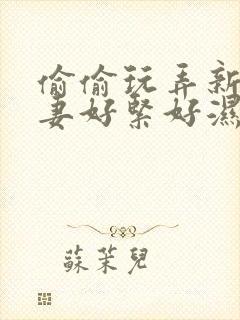 偷偷玩弄新
妻好緊好濕
蘇茉兒